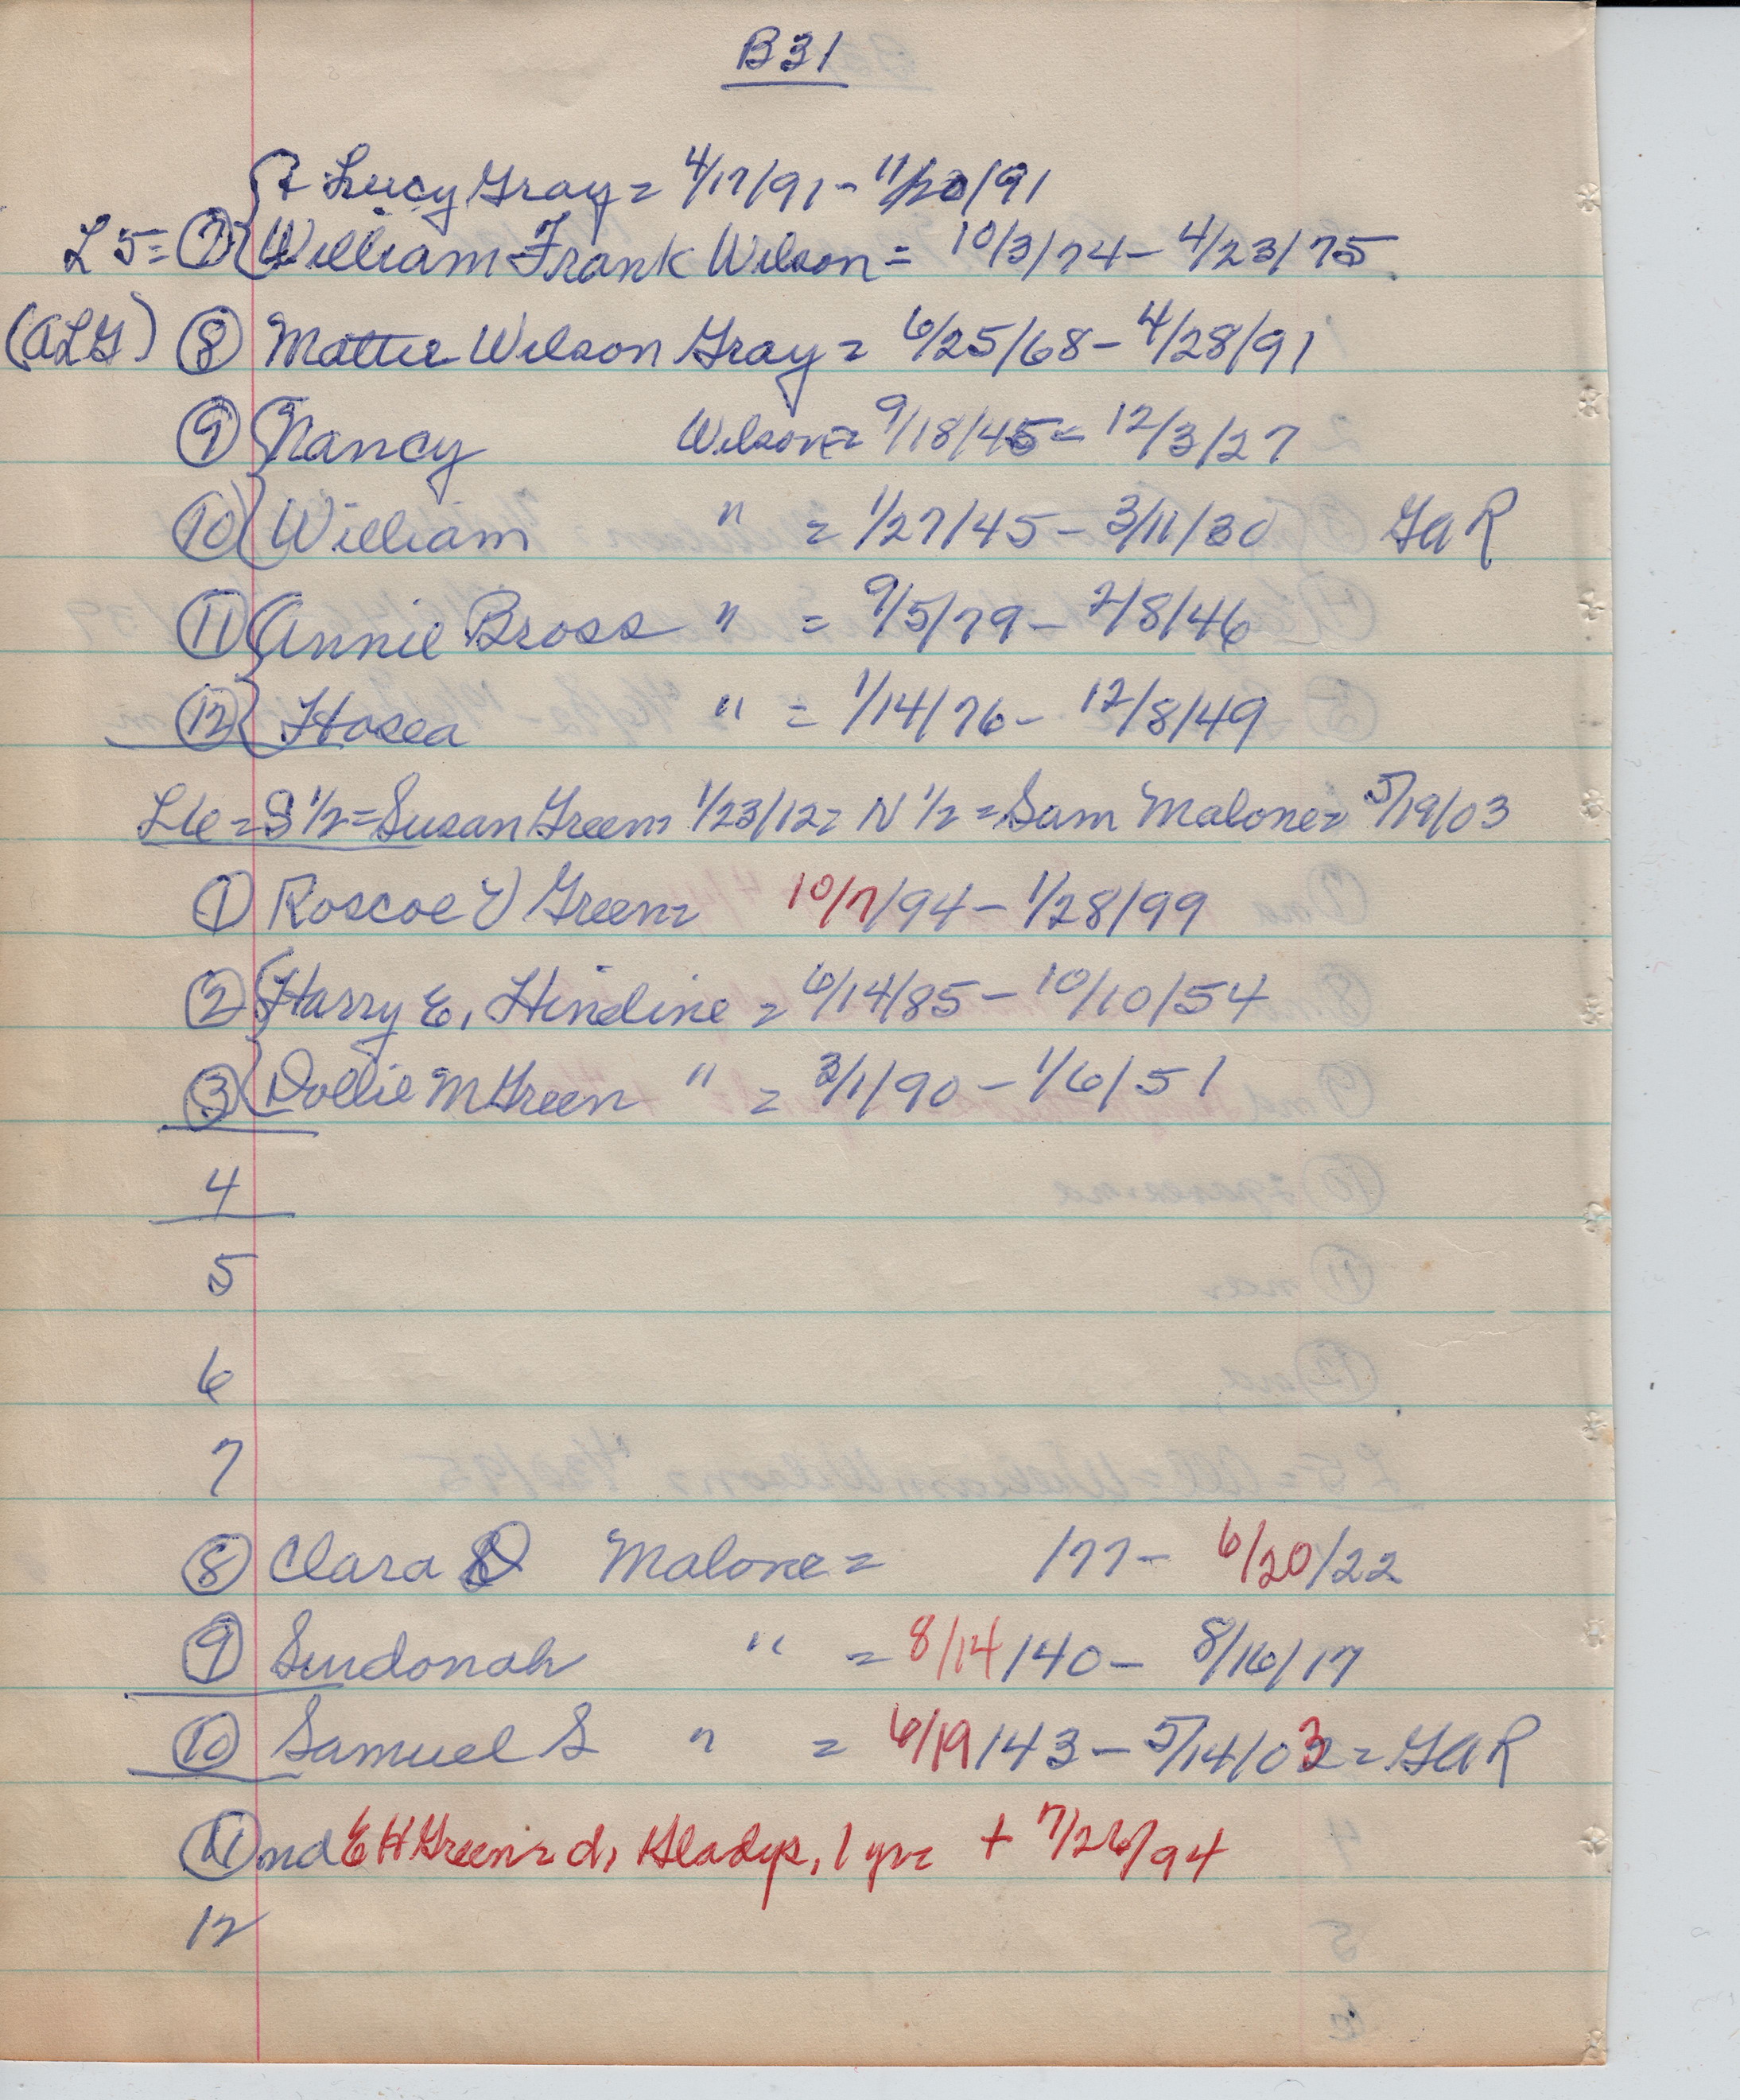 B31
{+ Lucy Gray = 4/17/91 - 11/20/91
L5 = 7 {William Frank Wilson = 10/3/74 - 4/23/75
(ALG) 8 Mattie Wilson Gray = 6/25/68 - 4/28/91
9 {Nancy Wilson = 9/18/45 = 12/3/27
10 {William " = 1/27/45 - 3/11/30 GAR
11 {Annie Bross " = 9/5/79 - 2/8/46
12 {Hosea " = 1/14/76 - 12/8/49
L6 = S 1/2 = Susan Green = 1/23/12 = N 1/2 = Sam Malone = 5/19/03
1 Roscoe Green = 10/7/94 - 1/28/99
2 {Harry E. Hineline = 6/14/85 - 10/10/54
3 {Dollie M Green " = 3/1/90 - 1/6/51
4
5
6
7
8 Clara D Malone = /77 - 6/20/22
9 " = 8/14/40 - 8/16/17
10 Samuel S " = 6/19/43 - 5/14/03 = GAR
11 md E H Green = d, Gladys, 1 yr = + 7/26/94
12